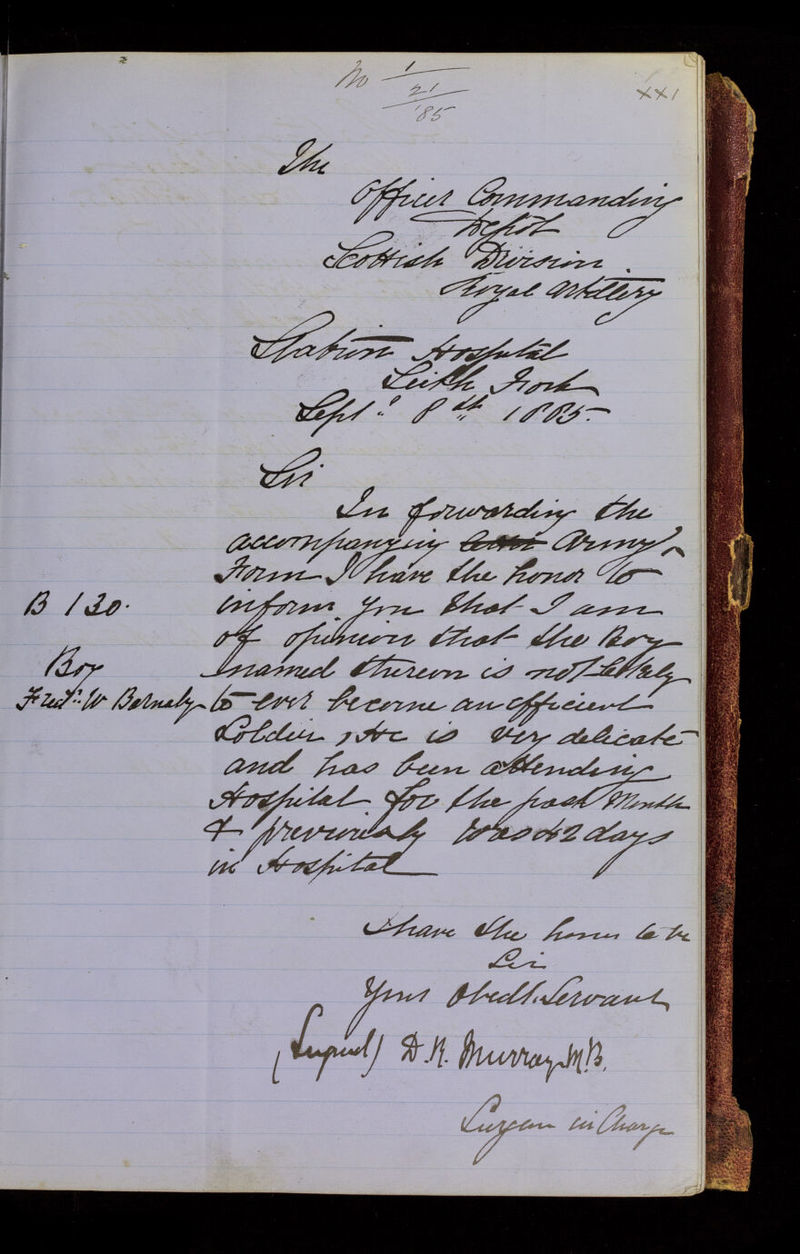 No 1
21
'85
xx1
The
Officer Commanding
Depôt
Scottish Division
Royal Artillery
Station Hospital
Leith Fort
Septr. 8th 1885.
Sir
In forwarding the
accompanying Army
Form I have the honor to
B 130.
inform you that I am
of opinion that the Boy
Boy
named thereon is not likely
Fredk. W Barnaby
to ever become an efficient
Soldier, He is very delicate
and has been attending
Hospital for the past Month
& previously was 42 days
in Hospital
I have the honor to be
Sir
Your Obedt. Servant
(Signed) D. R. Murray M.B.
Surgeon in Charge